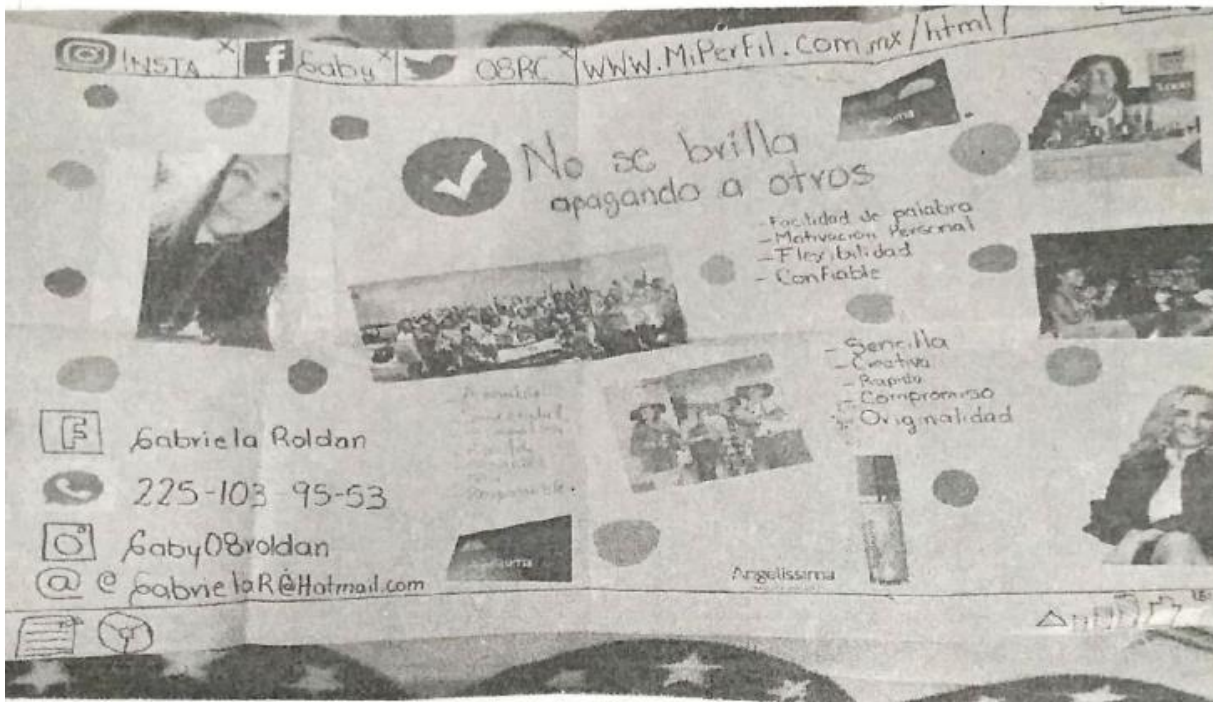 INSTA x
Gaby x
08RC x
www.MiPerfil.com.mx/html/
No se brilla
apagando a otros
- Facilidad de palabra
- Motivación Personal
- Flexibilidad
- Confiable
- Sencilla
- Creativa
- Rapida
- Compromiso
- Originalidad
F Gabriela Roldan
225-103 95-53
Gaby08roldan
@ @ GabrielaR@Hotmail.com
Angelissima